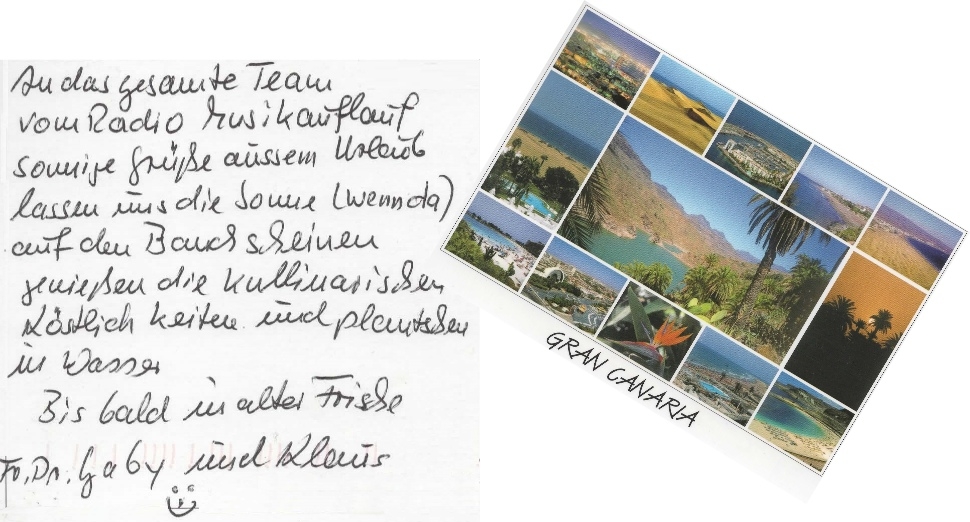 An das gesamte Team
vom Radio Musikauflauf
sonnige Grüße aussem Urlaub
lassen uns die Sonne (wenn da)
auf den Bauch scheinen
genießen die kullinarischen
Köstlichkeiten und plantschen
in Wasser
Bis bald in alter Frische
Fr. Dr. Gaby und Klaus
GRAN CANARIA